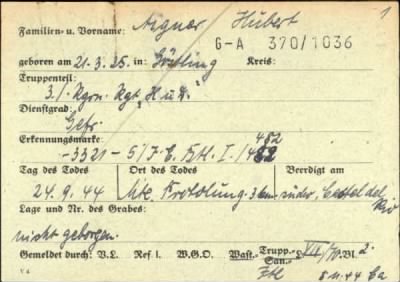 1
Familien- u. Vorname: Aigner Hubert
G-A 370/1036
geboren am 21.3.25. in: Göstling Kreis:
Truppenteil:
3./ Rgt. "H.u.D."
Dienstgrad:
Gefr.
Erkennungsmarke: 482
-3321- 5/ I./482
Tag des Todes Ort des Todes Beerdigt am
24.9.44 Mte. 3 km südw. Castel del Rio
Lage und Nr. des Grabes:
nicht geborgen.
Gemeldet durch: V.L. Ref I. W.G.O. Wast.- Trupp.- San.- L VII/70 Bl. 2.
8.11.44